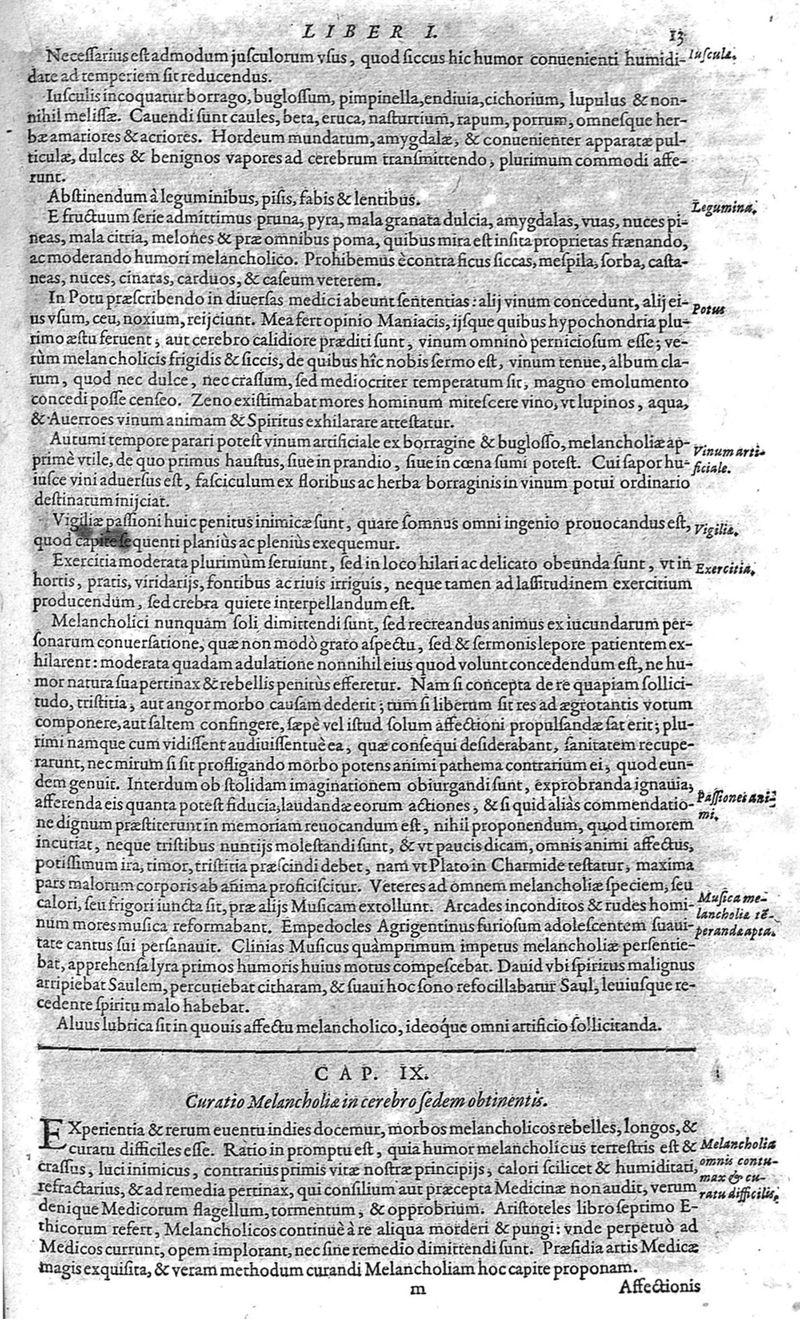 LIBER I.
13
Neceſſarius eſt admodum juſculorum vſus, quod ſiccus hic humor conuenienti humidi-
Iuſcula.
date ad temperiem ſit reducendus.
Iuſculis incoquatur borrago, bugloſſum, pimpinella, endiuia, cichorium, lupulus & non-
nihil meliſſæ. Cauendi ſunt caules, beta, eruca, naſturtium, rapum, porrum, omneſque her-
bæ amariores & acriores. Hordeum mundatum, amygdalæ, & conuenienter apparatæ pul-
ticulæ, dulces & benignos vapores ad cerebrum tranſmittendo, plurimum commodi affe-
runt.
Abſtinendum à leguminibus, piſis, fabis & lentibus.
Legumina.
E fructuum ſerie admittimus pruna, pyra, mala granata dulcia, amygdalas, vuas, nuces pi-
neas, mala citria, melones & præ omnibus poma, quibus mira eſt inſita proprietas frænando,
ac moderando humori melancholico. Prohibemus ècontra ficus ſiccas, meſpila, ſorba, caſta-
neas, nuces, cinaras, carduos, & caſeum veterem.
In Potu præſcribendo in diuerſas medici abeunt ſententias: alij vinum concedunt, alij ei-
Potus
us vſum, ceu, noxium, reijciunt. Mea fert opinio Maniacis, ijſque quibus hypochondria plu-
rimo æſtu feruent, aut cerebro calidiore præditi ſunt, vinum omninò pernicioſum eſſe; ve-
rùm melancholicis frigidis & ſiccis, de quibus hîc nobis ſermo eſt, vinum tenue, album cla-
rum, quod nec dulce, nec craſſum, ſed mediocriter temperatum ſit, magno emolumento
concedi poſſe cenſeo. Zeno exiſtimabat mores hominum miteſcere vino, vt lupinos, aqua,
& Auerroes vinum animam & Spiritus exhilarare atteſtatur.
Autumi tempore parari poteſt vinum artificiale ex borragine & bugloſſo, melancholiæ ap-
Vinum arti-
primè vtile, de quo primus hauſtus, ſiue in prandio, ſiue in cœna ſumi poteſt. Cui ſapor hu-
ficiale.
iuſce vini aduerſus eſt, faſciculum ex floribus ac herba borraginis in vinum potui ordinario
deſtinatum inijciat.
Vigiliæ paſſioni huic penitus inimicæ ſunt, quare ſomnus omni ingenio prouocandus eſt,
Vigiliæ.
quod capite ſequenti planiùs ac pleniùs exequemur.
Exercitia moderata plurimùm ſeruiunt, ſed in loco hilari ac delicato obeunda ſunt, vt in
Exercitia.
hortis, pratis, viridarijs, fontibus ac riuis irriguis, neque tamen ad laſſitudinem exercitium
producendum, ſed crebra quiete interpellandum eſt.
Melancholici nunquam ſoli dimittendi ſunt, ſed recreandus animus ex iucundarum per-
ſonarum conuerſatione, quæ non modò grato aſpectu, ſed & ſermonis lepore patientem ex-
hilarent: moderata quadam adulatione nonnihil eius quod volunt concedendum eſt, ne hu-
mor natura ſua pertinax & rebellis penitùs efferetur. Nam ſi concepta de re quapiam ſollici-
tudo, triſtitia, aut angor morbo cauſam dederit; tum ſi liberum ſit res ad ægrotantis votum
componere, aut ſaltem confingere, ſæpè vel iſtud ſolum affectioni propulſandæ ſat erit; plu-
rimi namque cum vidiſſent audiuiſſentuè ea, quæ conſequi deſiderabant, ſanitatem recupe-
rarunt, nec mirum ſi ſit profligando morbo potens animi pathema contrarium ei, quod eun-
dem genuit. Interdum ob ſtolidam imaginationem obiurgandi ſunt, exprobranda ignauia,
afferenda eis quanta poteſt fiducia, laudandæ eorum actiones, & ſi quid aliàs commendatio-
Paſſiones ani-
ne dignum præſtiterunt in memoriam reuocandum eſt, nihil proponendum, quod timorem
mi.
incutiat, neque triſtibus nuntijs moleſtandi ſunt, & vt paucis dicam, omnis animi affectus,
potiſſimum ira, timor, triſtitia præſcindi debet, nam vt Plato in Charmide teſtatur, maxima
pars malorum corporis ab anima proficiſcitur. Veteres ad omnem melancholiæ ſpeciem, ſeu
calori, ſeu frigori iuncta ſit, præ alijs Muſicam extollunt. Arcades inconditos & rudes homi-
Muſica me-
lancholiæ tẽ-
num mores muſica reformabant. Empedocles Agrigentinus furioſum adoleſcentem ſuaui-
perandæ apta.
tate cantus ſui perſanauit. Clinias Muſicus quàmprimum impetus melancholiæ perſentie-
bat, apprehenſa lyra primos humoris huius motus compeſcebat. Dauid vbi ſpiritus malignus
arripiebat Saulem, percutiebat citharam, & ſuaui hoc ſono refocillabatur Saul, leuiuſque re-
cedente ſpiritu malo habebat.
Aluus lubrica ſit in quouis affectu melancholico, ideoque omni artificio ſollicitanda.
CAP. IX.
Curatio Melancholiæ in cerebro ſedem obtinentis.
EXperientia & rerum euentu indies docemur, morbos melancholicos rebelles, longos, &
curatu difficiles eſſe. Ratio in promptu eſt, quia humor melancholicus terreſtris eſt &
Melancholia
craſſus, luci inimicus, contrarius primis vitæ noſtræ principijs, calori ſcilicet & humiditati,
omnis contu-
refractarius, & ad remedia pertinax, qui conſilium aut præcepta Medicinæ non audit, verum
max & cu-
ratu difficilis.
denique Medicorum flagellum, tormentum, & opprobrium. Ariſtoteles libro ſeptimo E-
thicorum refert, Melancholicos continuè à re aliqua morderi & pungi: vnde perpetuò ad
Medicos currunt, opem implorant, nec ſine remedio dimittendi ſunt. Præſidia artis Medicæ
magis exquiſita, & veram methodum curandi Melancholiam hoc capite proponam.
m
Affectionis